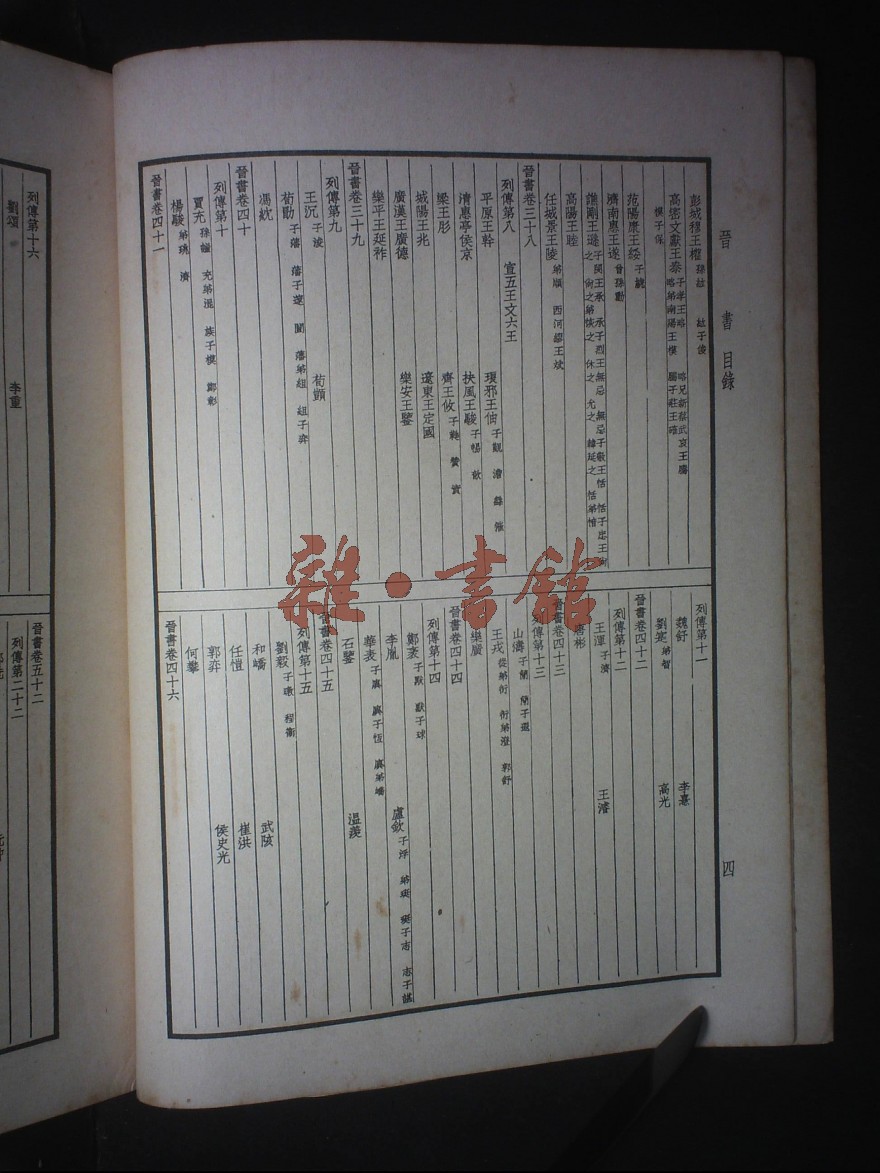 晉書目錄
四
彭城穆王權 孫紘 紘子俊
高密文獻王泰 子孝王略 略兄新蔡武哀王騰 略弟南陽王模 騰子莊王確
模子保
范陽康王綏 子虓
濟南惠王遂 曾孫勳
譙剛王遜 子閔王承 承子烈王無忌 無忌子敬王恬 恬子忠王尚之 尚之弟恢之 休之 允之 韓延之 恬弟愔
高陽王睦
任城景王陵 弟順 西河繆王斌
晉書卷三十八
列傳第八 宣五王文六王
平原王幹 琅邪王伷 子覲 澹 繇 漼
清惠亭侯京 扶風王駿 子暢 歆
梁王肜 齊王攸 子蕤 贊 寔
城陽王兆 遼東王定國
廣漢王廣德 樂安王鑒
樂平王延祚
晉書卷三十九
列傳第九
王沉 子浚 荀顗
荀勖 子藩 藩子邃 闓 藩弟組 組子奕
馮紞
晉書卷四十
列傳第十
賈充 孫謐 充弟混 族子模 郭彰
楊駿 弟珧 濟
晉書卷四十一
列傳第十一
魏舒 李憙
劉寔 弟智 高光
晉書卷四十二
列傳第十二
王渾 子濟 王濬
唐彬
晉書卷四十三
列傳第十三
山濤 子簡 簡子遐
王戎 從弟衍 衍弟澄 郭舒
樂廣
晉書卷四十四
列傳第十四
鄭袤 子默 默子球
李胤 盧欽 子浮 弟珽 珽子志 志子諶
華表 子廙 廙子恆 廙弟嶠
石鑒 溫羨
晉書卷四十五
列傳第十五
劉毅 子暾 程衞
和嶠 武陔
任愷 崔洪
郭弈 侯史光
何攀
晉書卷四十六
列傳第十六
劉頌 李重
晉書卷五十二
列傳第二十二
雜·書館